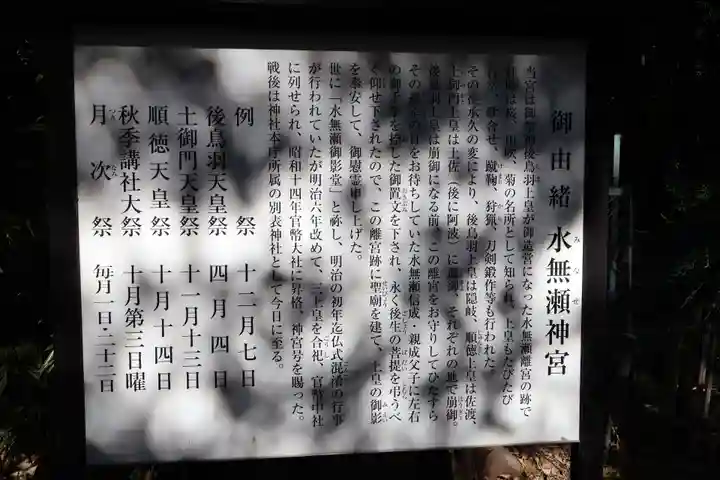 御由緒 水無瀬神宮
みなせ
当宮は御 後鳥羽上皇が御造営になった水無瀬離宮の跡で
は桜、山吹、菊の名所として知られ、上皇もたびたび
歌合せ、蹴鞠、狩猟、刀剣鍛作等も行われた
その後承久の変により、後鳥羽上皇は隠岐、順徳上皇は佐渡、
土御門上皇は土佐(後に阿波)に 、それぞれの地で崩御。
後鳥羽上皇は崩御になる前、この離宮をお守りしてひたすら
その をお待ちしていた水無瀬信成・親成父子に左右
の御手 を した御置文を下され、永く後生の菩提を弔うべ
く仰せ下されたので、この離宮跡に聖廟を建て、上皇の御影
を奉安して、御慰霊申し上げた。
世に「水無瀬御影堂」と称し、明治の初年迄仏式混淆の行事
が行われていたが明治六年改めて、三上皇を合祀、官幣中社
に列せられ、昭和十四年官幣大社に昇格、神宮号を賜った。
戦後は神社本庁所属の別表神社として今日に至る。
例祭 十二月七日
後鳥羽天皇祭 四月四日
土御門天皇祭 十一月十三日
順徳天皇祭 十月十四日
秋季講社大祭 十月第三日曜
月次祭 毎月一日・二十二日